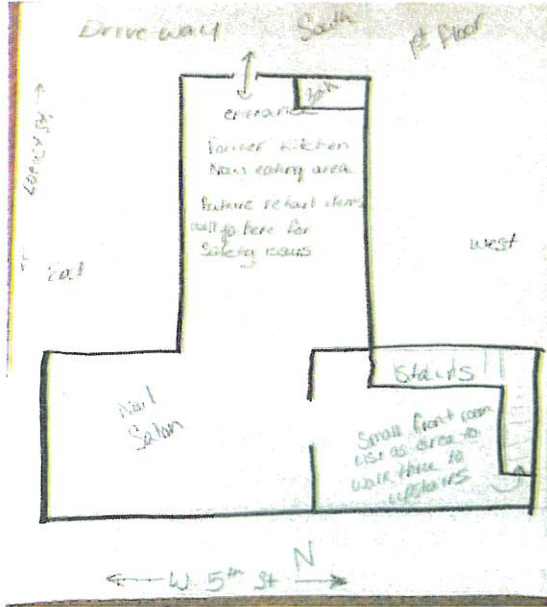 Drive way
South
1st floor
Bath
entrance
Former Kitchen
Now eating area
Future retail items
will go here for
Safety issues
West
Nail
Salon
Stairs
Small front room
use as area to
walk threw to
upstairs
N
W. 5th St